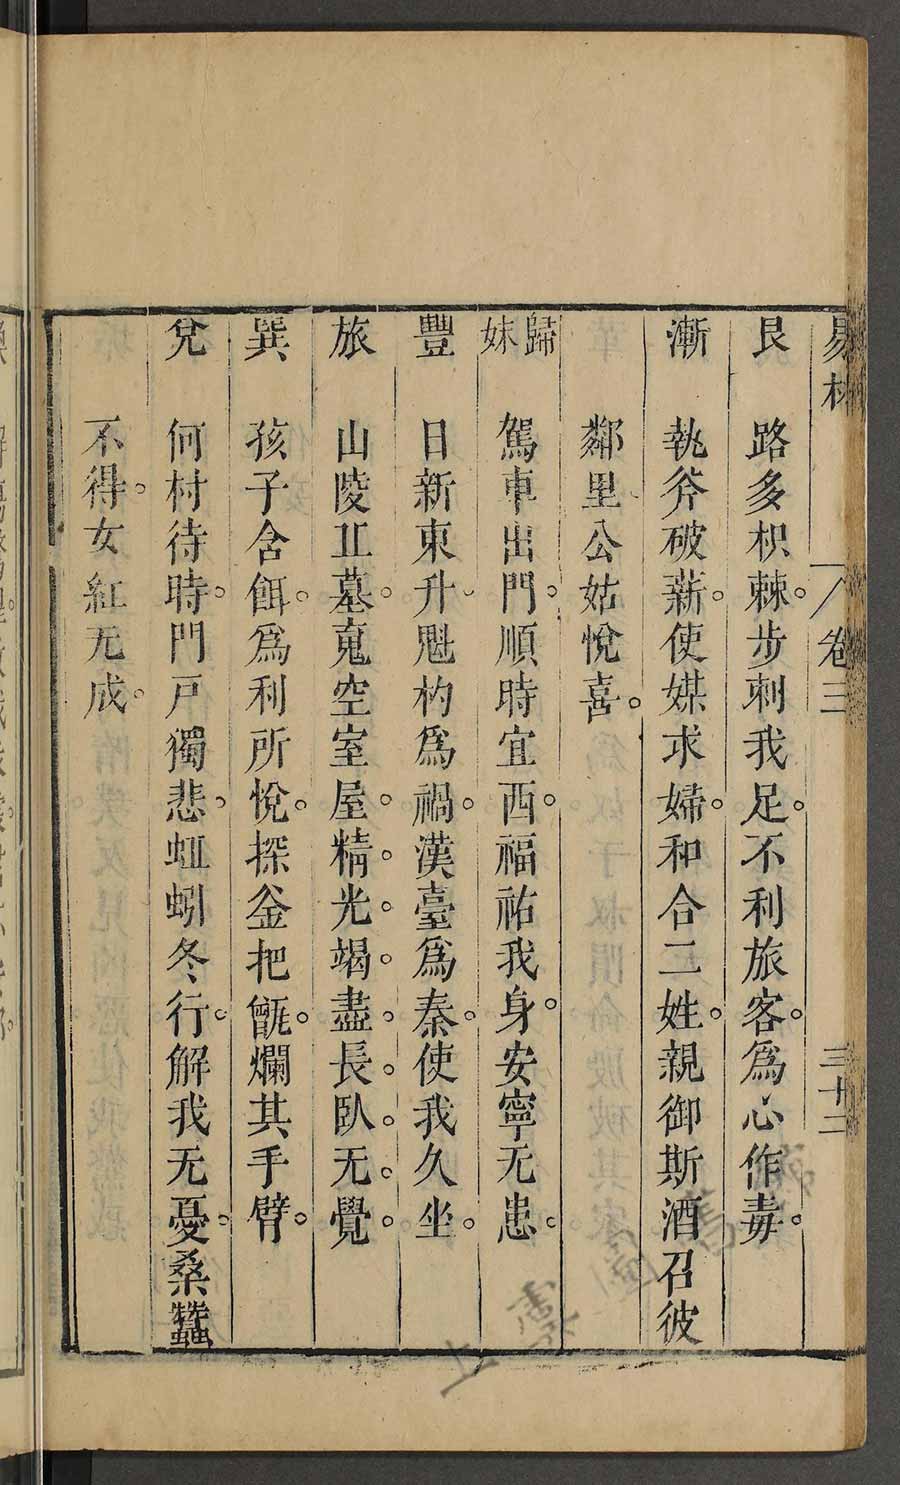 易林 卷三 三十二
艮 路多枳棘。步刺我足。不利旅客。爲心作毒。
漸 執斧破薪。使媒求婦。和合二姓。親御斯酒召彼
鄰里。公姑悅喜。
歸妹 駕車出門。順時宜西。福祐我身。安寧无患。
豐 日新東升。魁杓爲禍。漢臺爲秦。使我久坐。
旅 山陵丘墓。䰟空室屋。精光竭盡。長臥无覺。
巽 孩子含餌。爲利所悅。探釜把甑。爛其手臂。
兌 何村待時。門戸獨悲。蚯蚓冬行。解我无憂。桑蠶
不得。女紅无成。